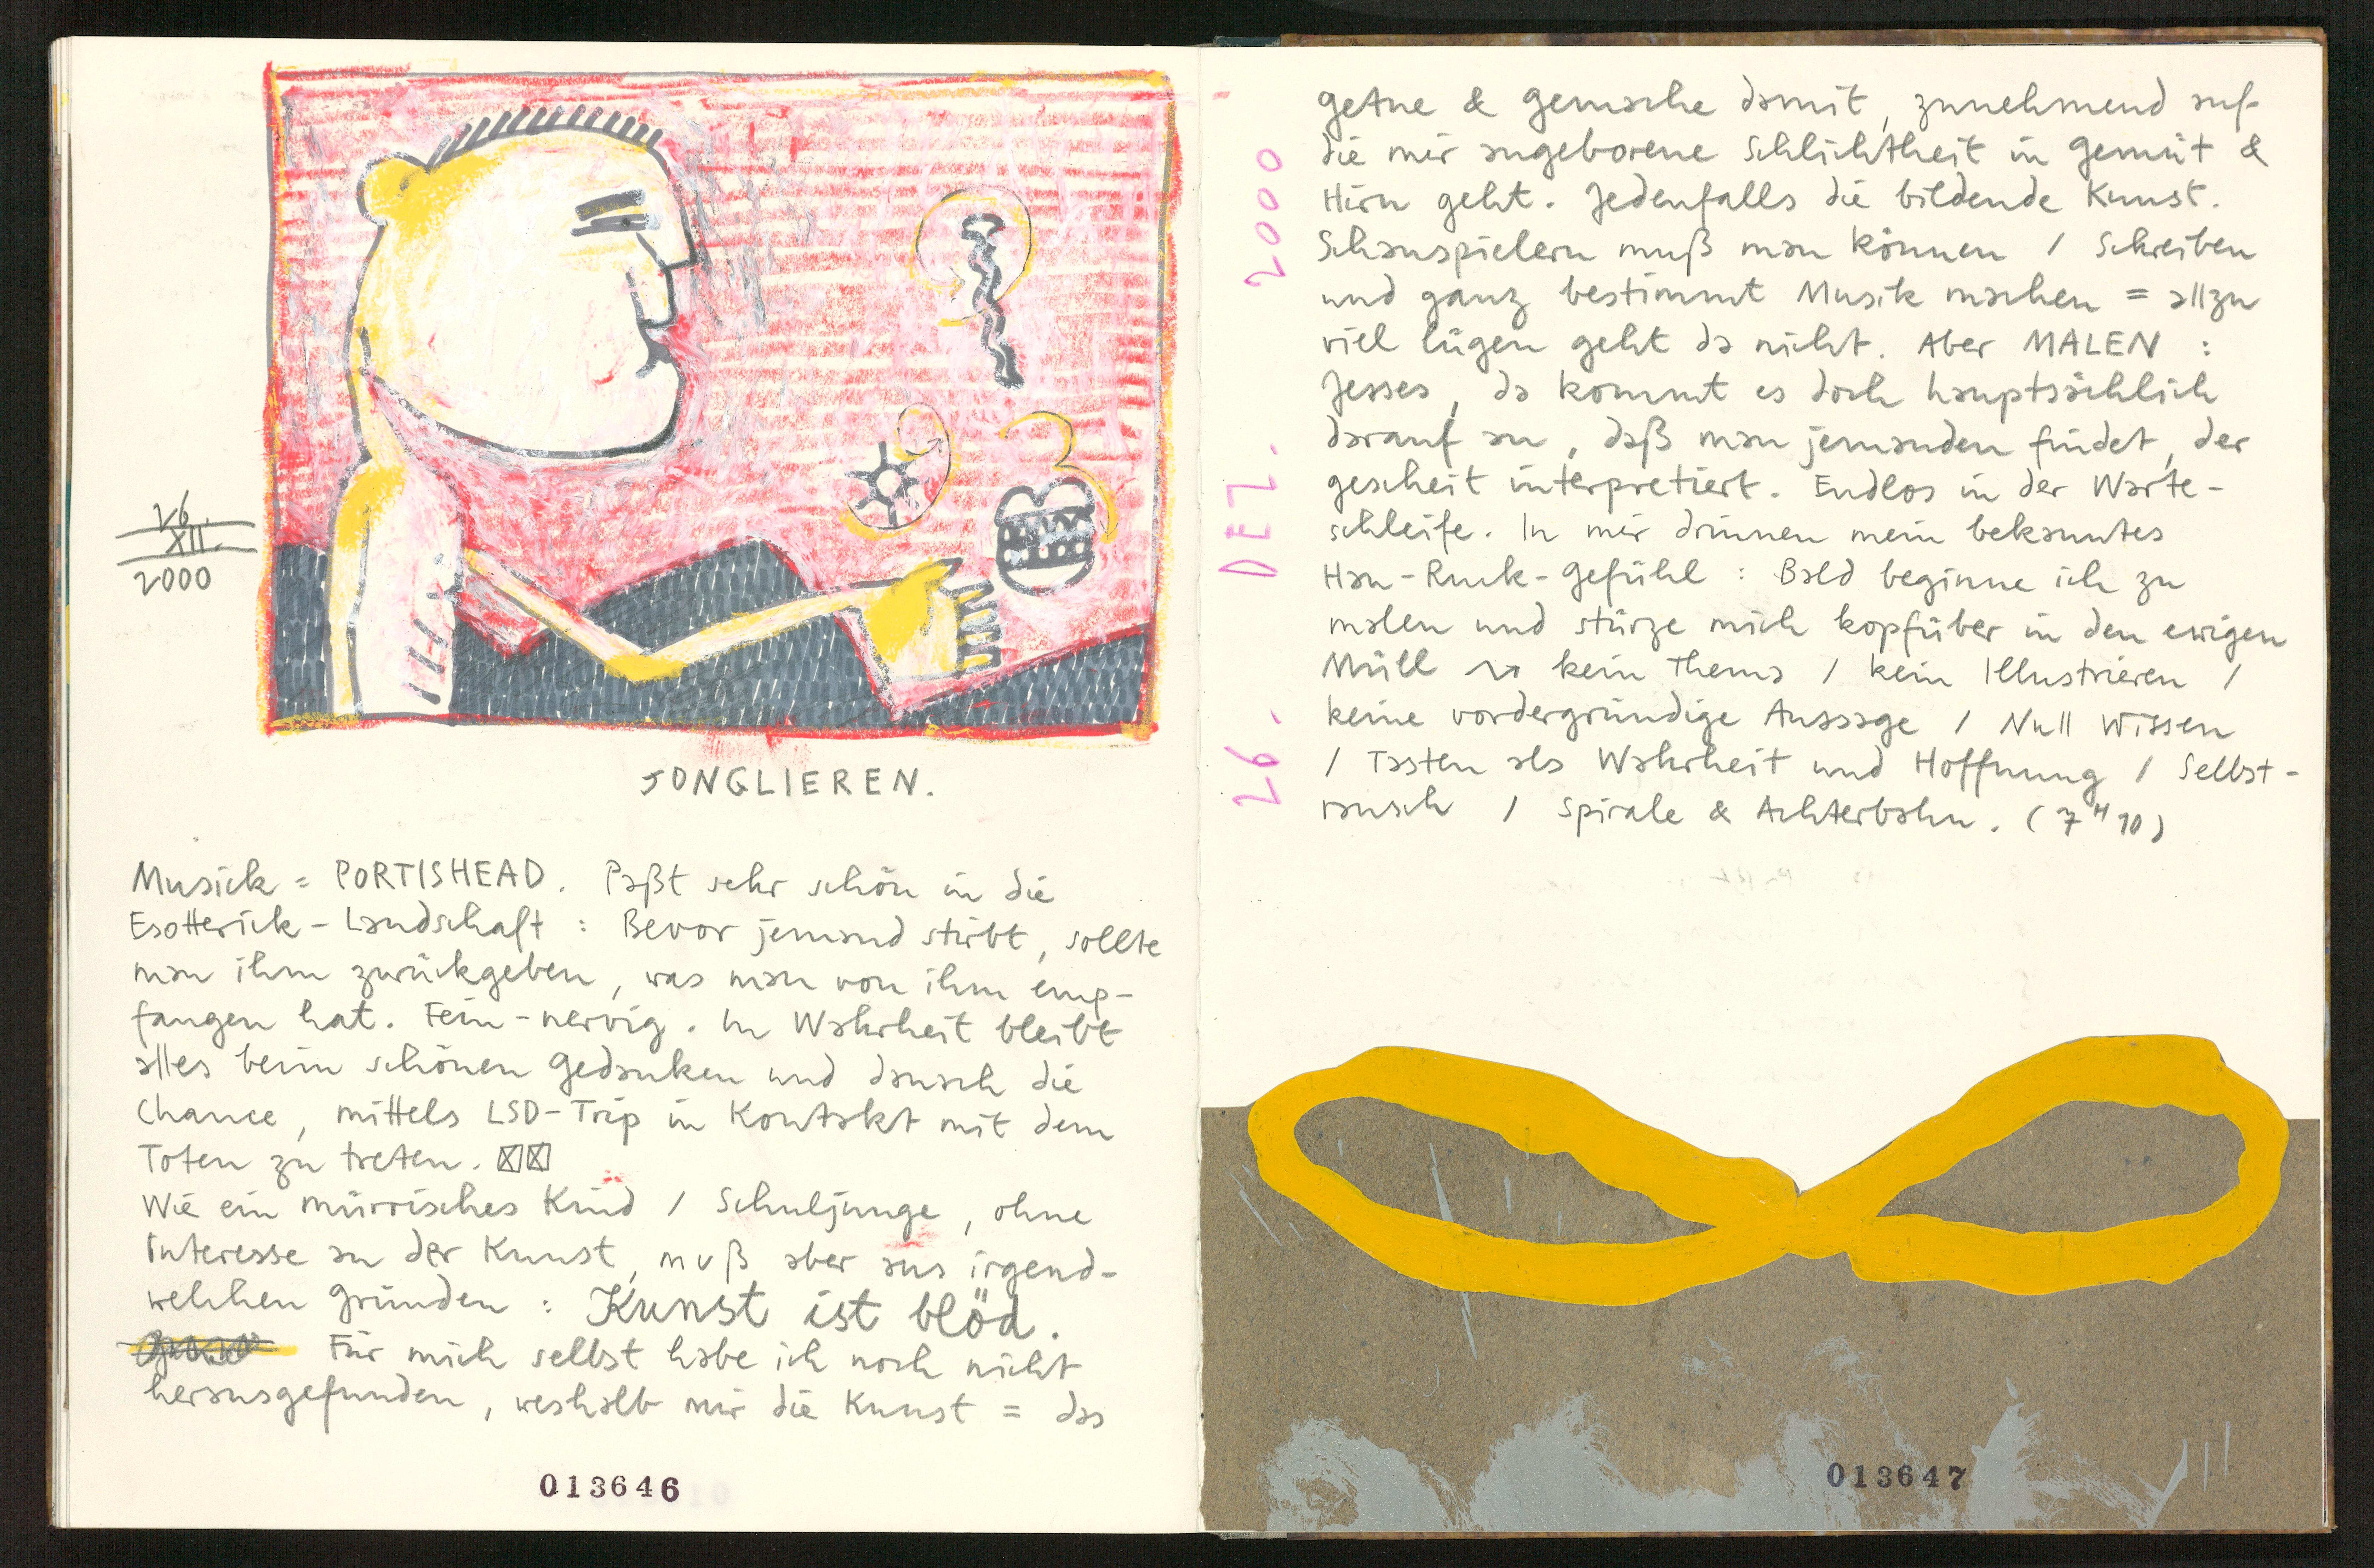 26.
XII.
2000
JONGLIEREN.
Musick = PORTISHEAD. Paßt sehr schön in die
Esotterick-Landschaft : Bevor jemand stirbt, sollte
man ihm zurückgeben, was man von ihm emp-
fangen hat. Fein-nervig. In Wahrheit bleibt
alles beim schönen Gedanken und danach die
Chance, mittels LSD-Trip in Kontakt mit dem
Toten zu treten.
Wie ein mürrisches Kind / Schuljunge, ohne
Interesse an der Kunst, muß aber aus irgend-
welchen Gründen : Kunst ist blöd.
Für mich selbst habe ich noch nicht
herausgefunden, weshalb mir die Kunst = das
013646
26. DEZ. 2000
Getue & Gemache damit, zunehmend auf
die mir angeborene Schlichtheit in Gemüt &
Hirn geht. Jedenfalls die bildende Kunst.
Schauspielern muß man können / Schreiben
und ganz bestimmt Musik machen = allzu
viel lügen geht da nicht. Aber MALEN :
Jesses, da kommt es doch hauptsächlich
darauf an, daß man jemanden findet, der
gescheit interpretiert. Endlos in der Warte-
schleife. In mir drinnen mein bekanntes
Hau-Ruck-Gefühl : Bald beginne ich zu
malen und stürze mich kopfüber in den ewigen
Müll → kein Thema / kein Illustrieren /
keine vordergründige Aussage / Null Wissen
/ Tasten als Wahrheit und Hoffnung / Selbst-
rausch / Spirale & Achterbahn. (7 H 10)
013647